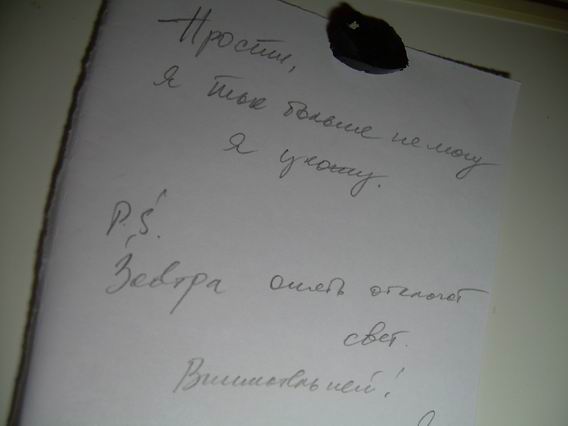 Прости,
я так больше не могу
Я ухожу.
P.S.
Завтра опять отключат
свет.
Внимательней!